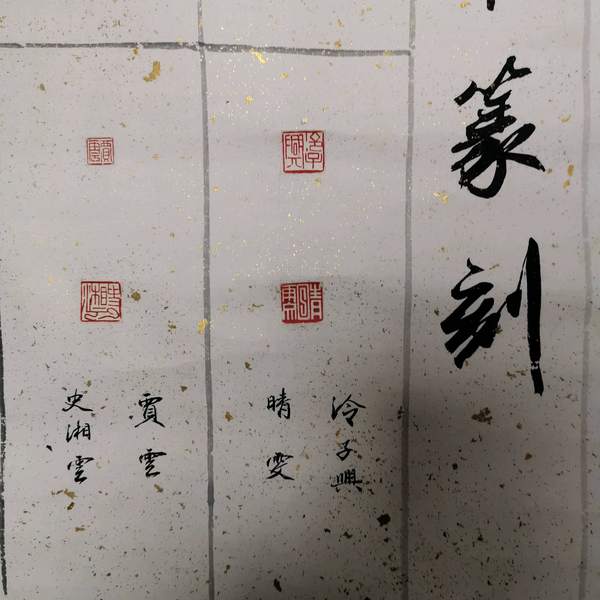 篆刻
冷子興
晴雯
賈雲
史湘雲